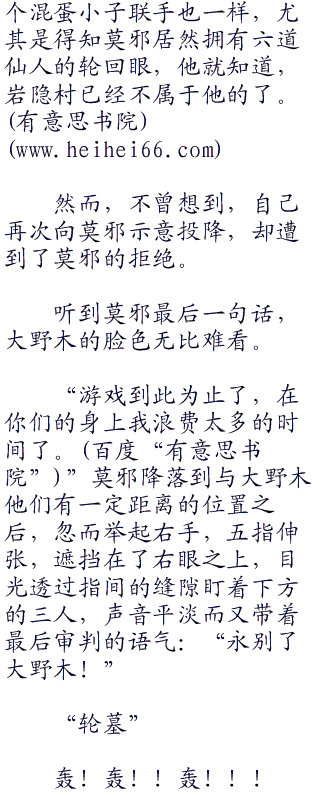 个混蛋小子联手也一样，尤
其是得知莫邪居然拥有六道
仙人的轮回眼，他就知道，
岩隐村已经不属于他的了。
(有意思书院)
(www.heihei66.com)
然而，不曾想到，自己
再次向莫邪示意投降，却遭
到了莫邪的拒绝。
听到莫邪最后一句话，
大野木的脸色无比难看。
“游戏到此为止了，在
你们的身上我浪费太多的时
间了。(百度“有意思书
院”)”莫邪降落到与大野木
他们有一定距离的位置之
后，忽而举起右手，五指伸
张，遮挡在了右眼之上，目
光透过指间的缝隙盯着下方
的三人，声音平淡而又带着
最后审判的语气：“永别了
大野木！”
“轮墓”
轰！轰！！轰！！！